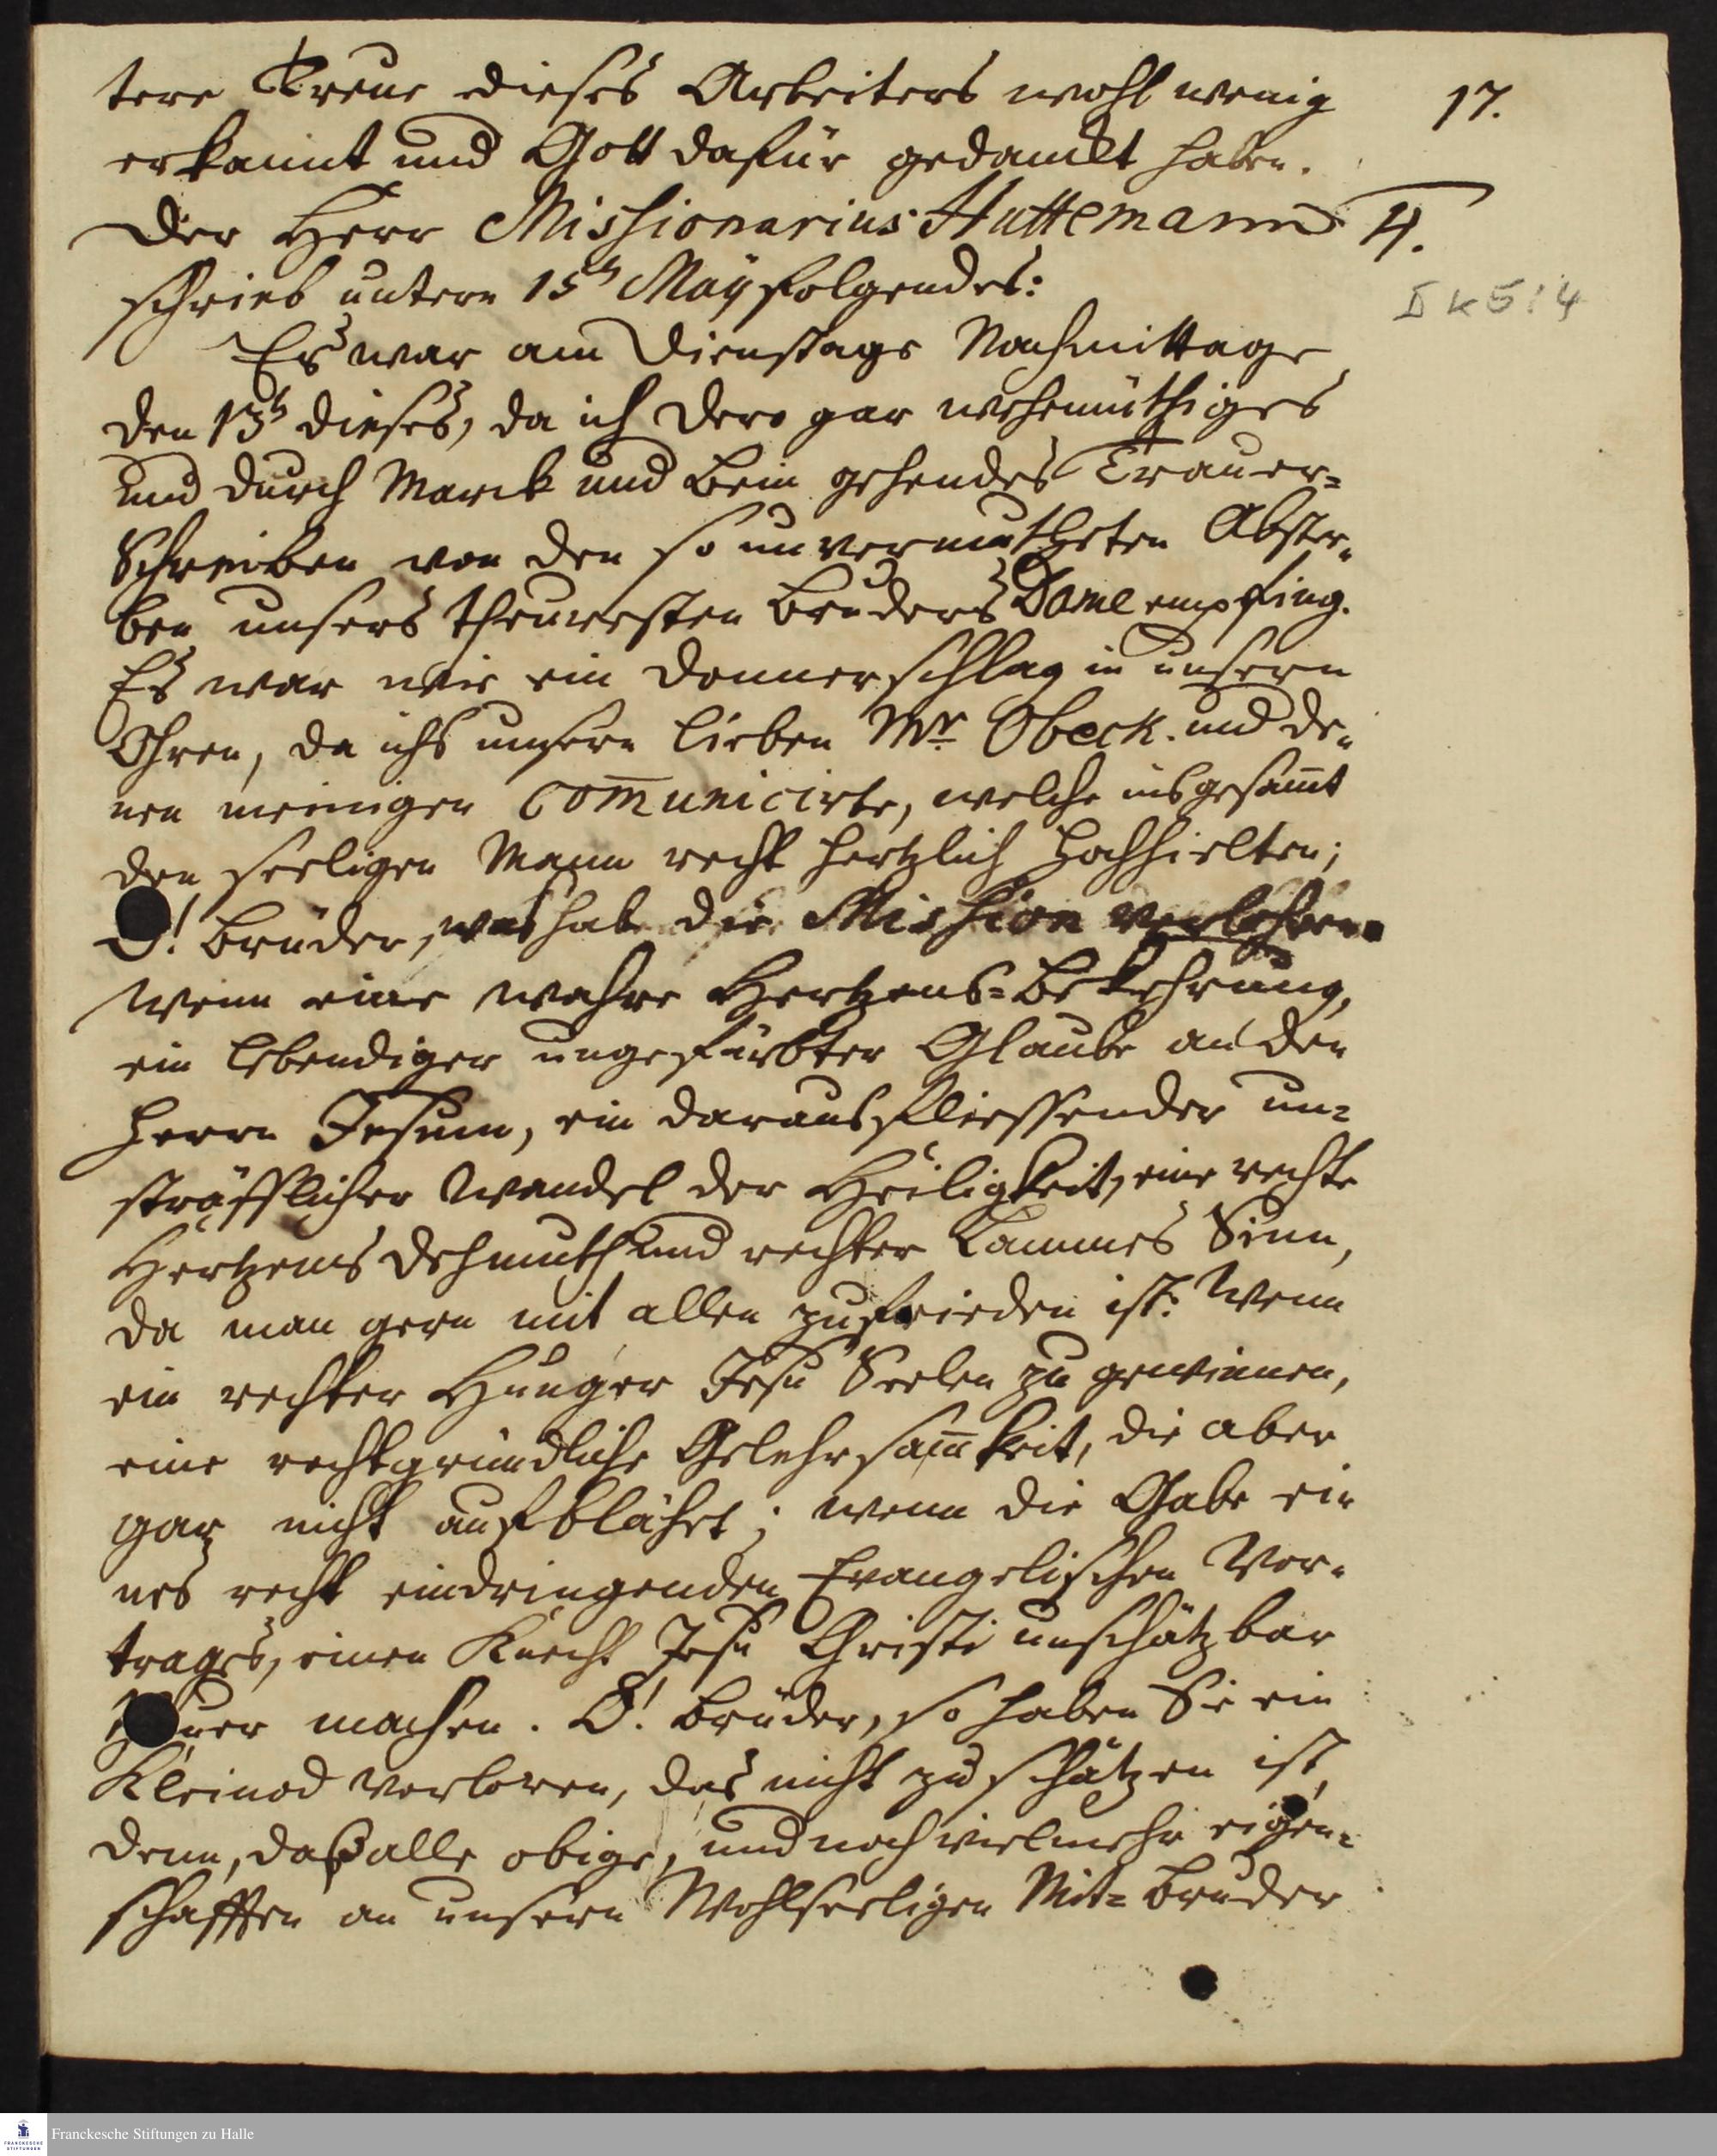 tere Treue dieses Arbeiters wohl wenig
17.
erkannt und Gott dafür gedanckt haben.
Der Herr Missionarius Huttemann
4.
schrieb untern 15ⁿ Maÿ folgendes:
II K 5:4
Es war am Dienstags Nachmittage
den 13ⁿ dieses, da ich Dero gar wehmüthiges
und durch Marck und Bein gehendes Trauer=
Schreiben von den so unvermutheten Abster=
ben unsers theuresten Bruders Dame empfing.
Es war wie ein Donnerschlag in unsern
Ohren, da ichs unsern lieben Mr Obeck. und de=
nen meinigen com̅unicirte, welche insgesam̅t
den seeligen Mann recht hertzlich hochhielten;
O! Brüder, was hat die Mission verlohren.
Wenn eine wahre Hertzens=Bekehrung,
ein lebendiger ungefärbter Glaube an den
Herrn Jesum, ein daraus fliessender un=
sträfflicher Wandel der Heiligkeit, eine rechte
Hertzens Dehmuth und rechter Lammes Sinn,
da man gern mit allen zufrieden ist: Wenn
ein rechter Hunger Jesu Seelen zu gewinnen,
eine rechtgründliche Gelehrsam̅keit, die aber
gar nicht aufblähet; wenn die Gabe ei=
nes recht eindringenden Evangelischen Vor=
trages, einen Knecht Jesu Christi unschätzbar
machen. O! Brüder, so haben Sie ein
Kleinod verloren, das nicht zu schätzen ist,
denn, daß alle obige, und noch vielmehr eigen=
schafften an unsern Wohlseeligen Mit=Bruder
Franckesche Stiftungen zu Halle
FRANCKESCHE
STIFTUNGEN